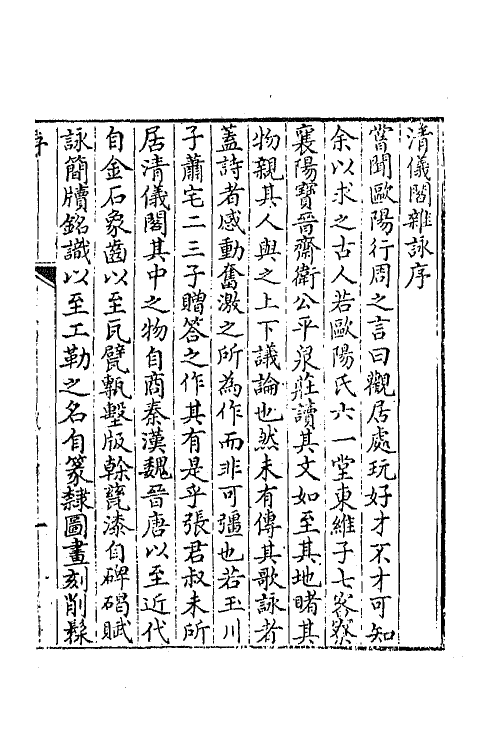 清儀閣雜詠序
嘗聞歐陽行周之言曰觀居處玩好才不才可知
余以求之古人若歐陽氏六一堂東維子七客寮
襄陽寶晉齋衛公平泉莊讀其文如至其地睹其
物親其人與之上下議論也然未有傳其歌詠者
蓋詩者感動奮激之所為作而非可彊也若玉川
子蕭宅二三子贈答之作其有是乎張君叔未所
居清儀閣其中之物自商秦漢魏晉唐以至近代
自金石象齒以至瓦甓甎墼版榦甆漆自碑碣賦
詠簡牘銘識以至工勒之名自篆隸圖畫刻削髹
序
一